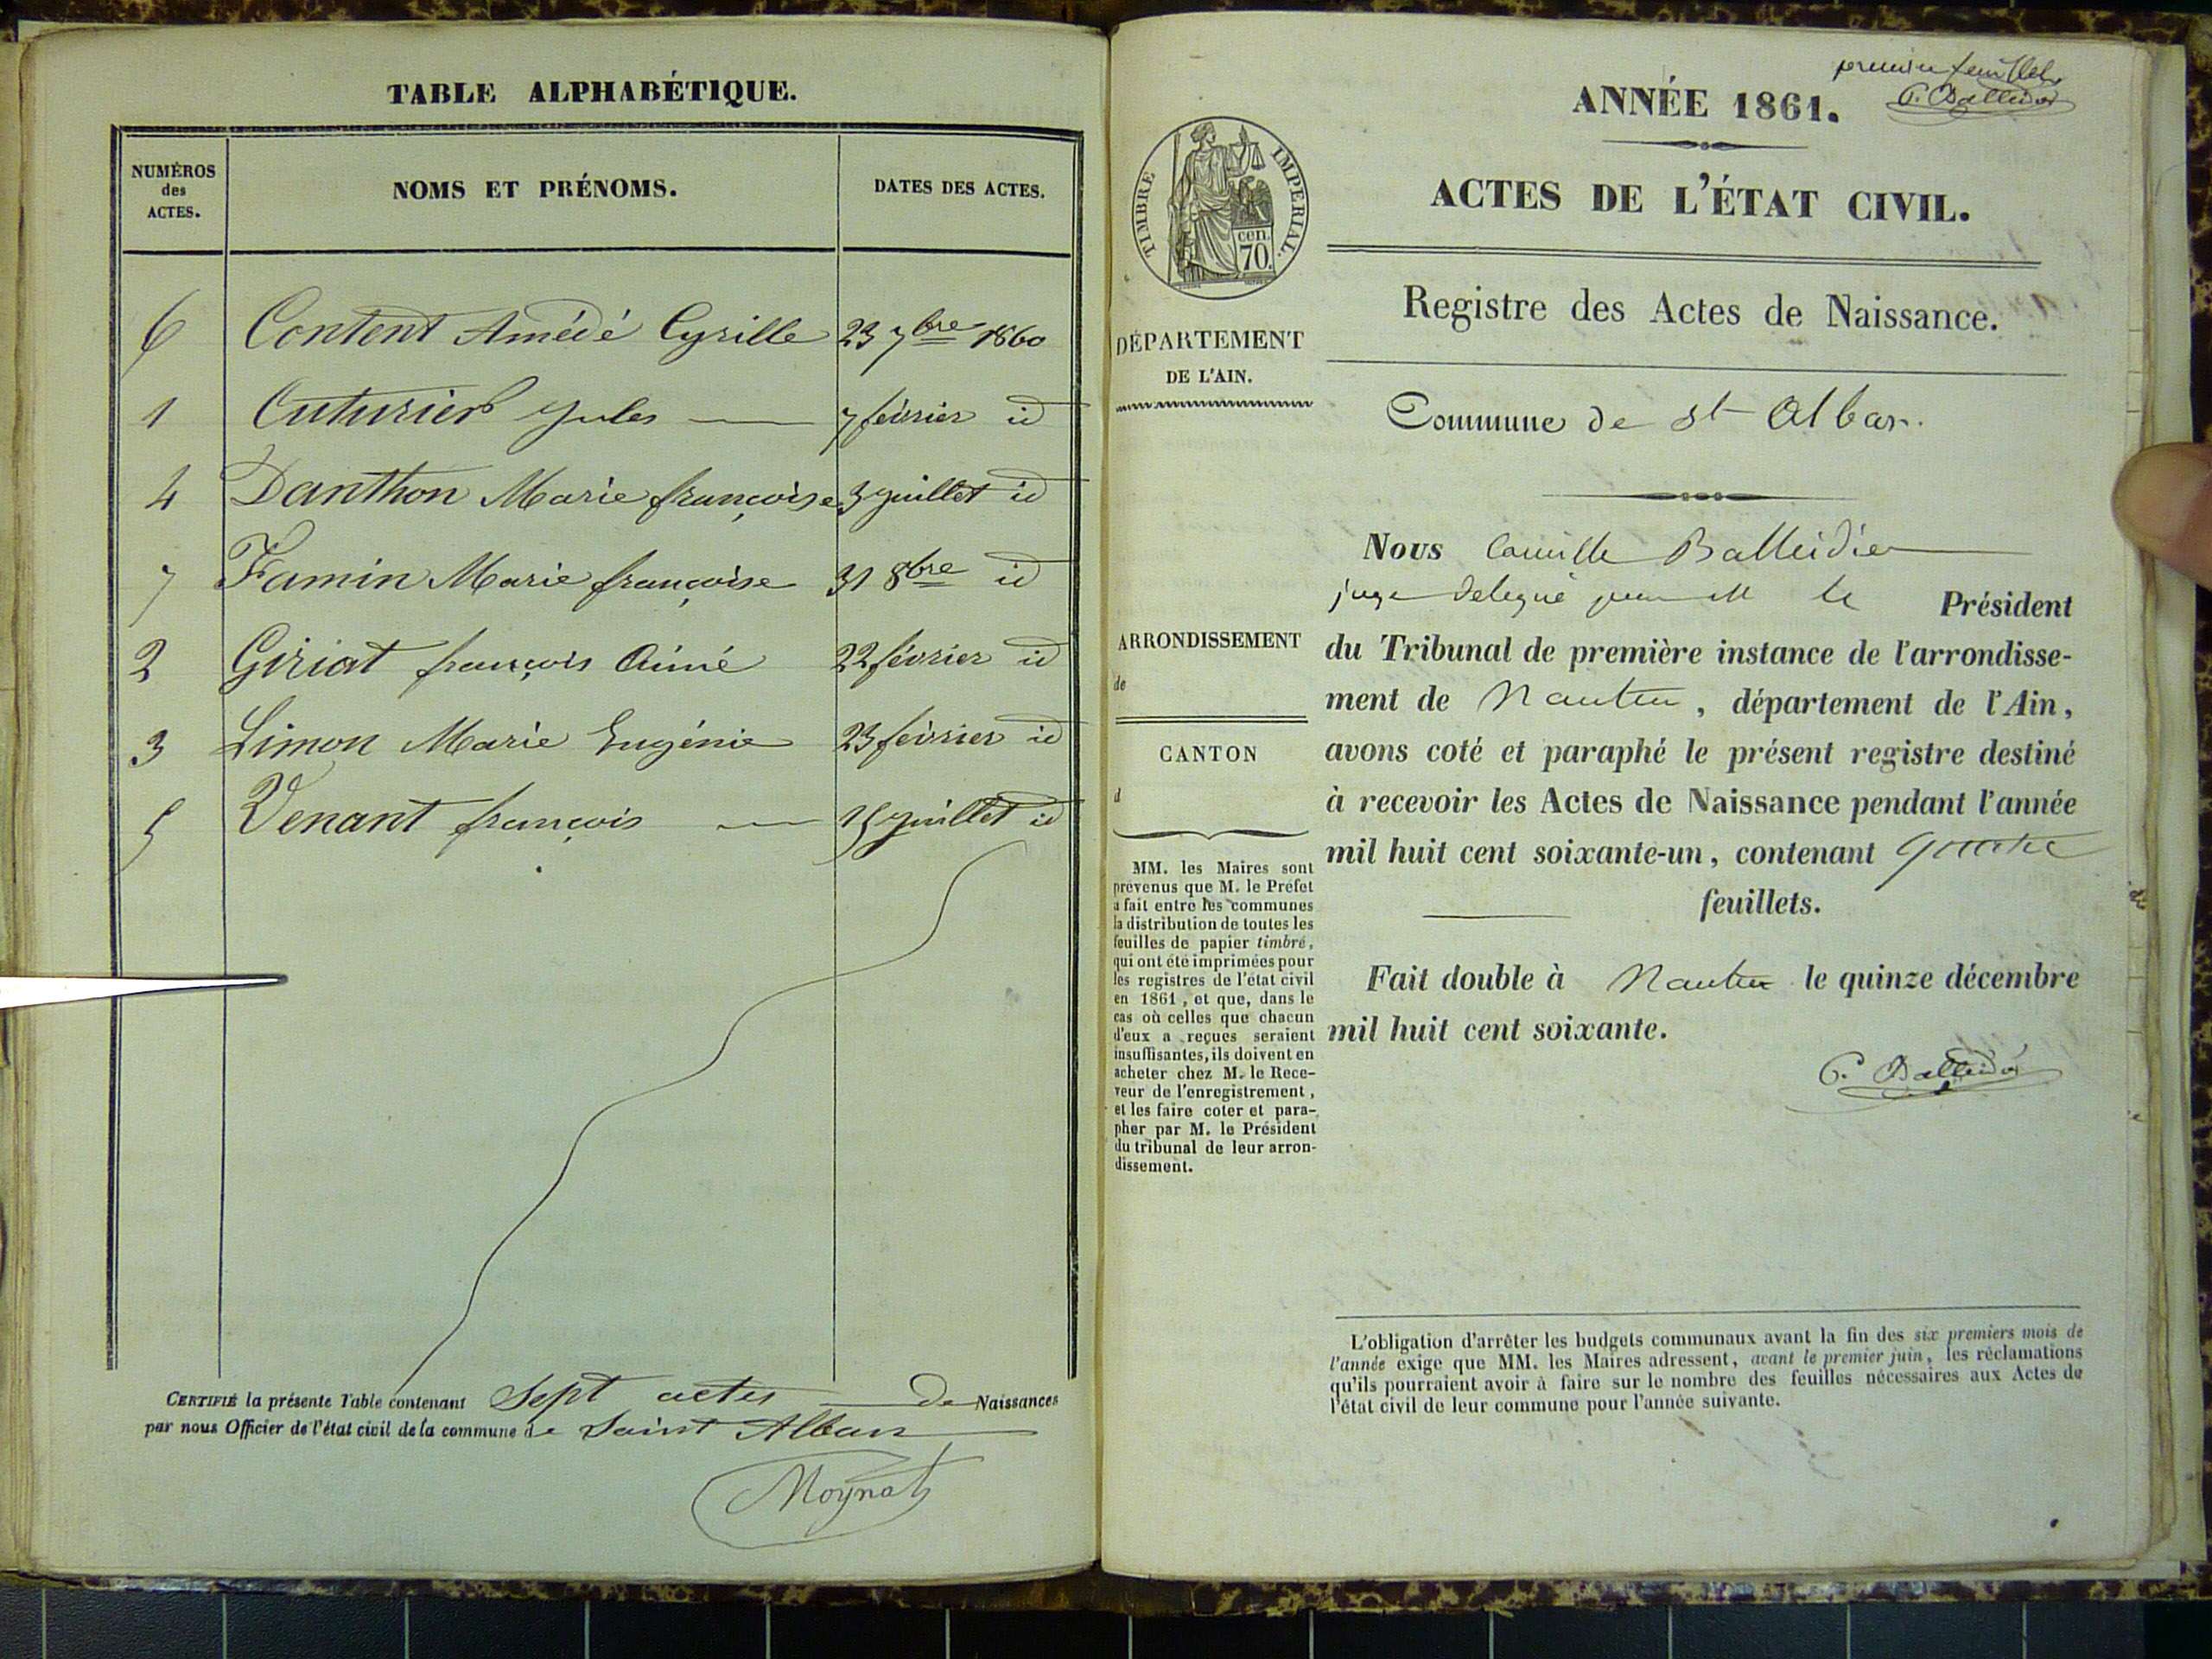 TABLE ALPHABÉTIQUE.
NUMÉROS des ACTES. NOMS ET PRÉNOMS. DATES DES ACTES.
6 Content Amédé Cyrille 23 7bre 1860
1 Cuturier Jules 7 février id
4 Danthon Marie françoise 3 juillet id
7 Famin Marie françoise 31 8bre id
2 Giriat françois Aimé 22 février id
3 Limon Marie Eugénie 23 février id
5 Venant françois 15 juillet id
CERTIFIÉ la présente Table contenant Sept actes de Naissances
par nous Officier de l'état civil de la commune de Saint Alban
Moynat
premier feuillet
C. Balleidier
ANNÉE 1861.
ACTES DE L'ÉTAT CIVIL.
TIMBRE IMPERIAL.
cen.
70.
Registre des Actes de Naissance.
DÉPARTEMENT
DE L'AIN.
Commune de St Alban.
Nous Camille Balleidier
juge délégué par M le Président
du Tribunal de première instance de l'arrondisse-
ment de Nantua, département de l'Ain,
avons coté et paraphé le présent registre destiné
à recevoir les Actes de Naissance pendant l'année
mil huit cent soixante-un, contenant quatre
feuillets.
Fait double à Nantua le quinze décembre
mil huit cent soixante.
C. Balleidier
ARRONDISSEMENT
de
CANTON
d
MM. les Maires sont
prévenus que M. le Préfet
a fait entre les communes
la distribution de toutes les
feuilles de papier timbré,
qui ont été imprimées pour
les registres de l'état civil
en 1861, et que, dans le
cas où celles que chacun
d'eux a reçues seraient
insuffisantes, ils doivent en
acheter chez M. le Rece-
veur de l'enregistrement,
et les faire coter et para-
pher par M. le Président
du tribunal de leur arron-
dissement.
L'obligation d'arrêter les budgets communaux avant la fin des six premiers mois de
l'année exige que MM. les Maires adressent, avant le premier juin, les réclamations
qu'ils pourraient avoir à faire sur le nombre des feuilles nécessaires aux Actes de
l'état civil de leur commune pour l'année suivante.